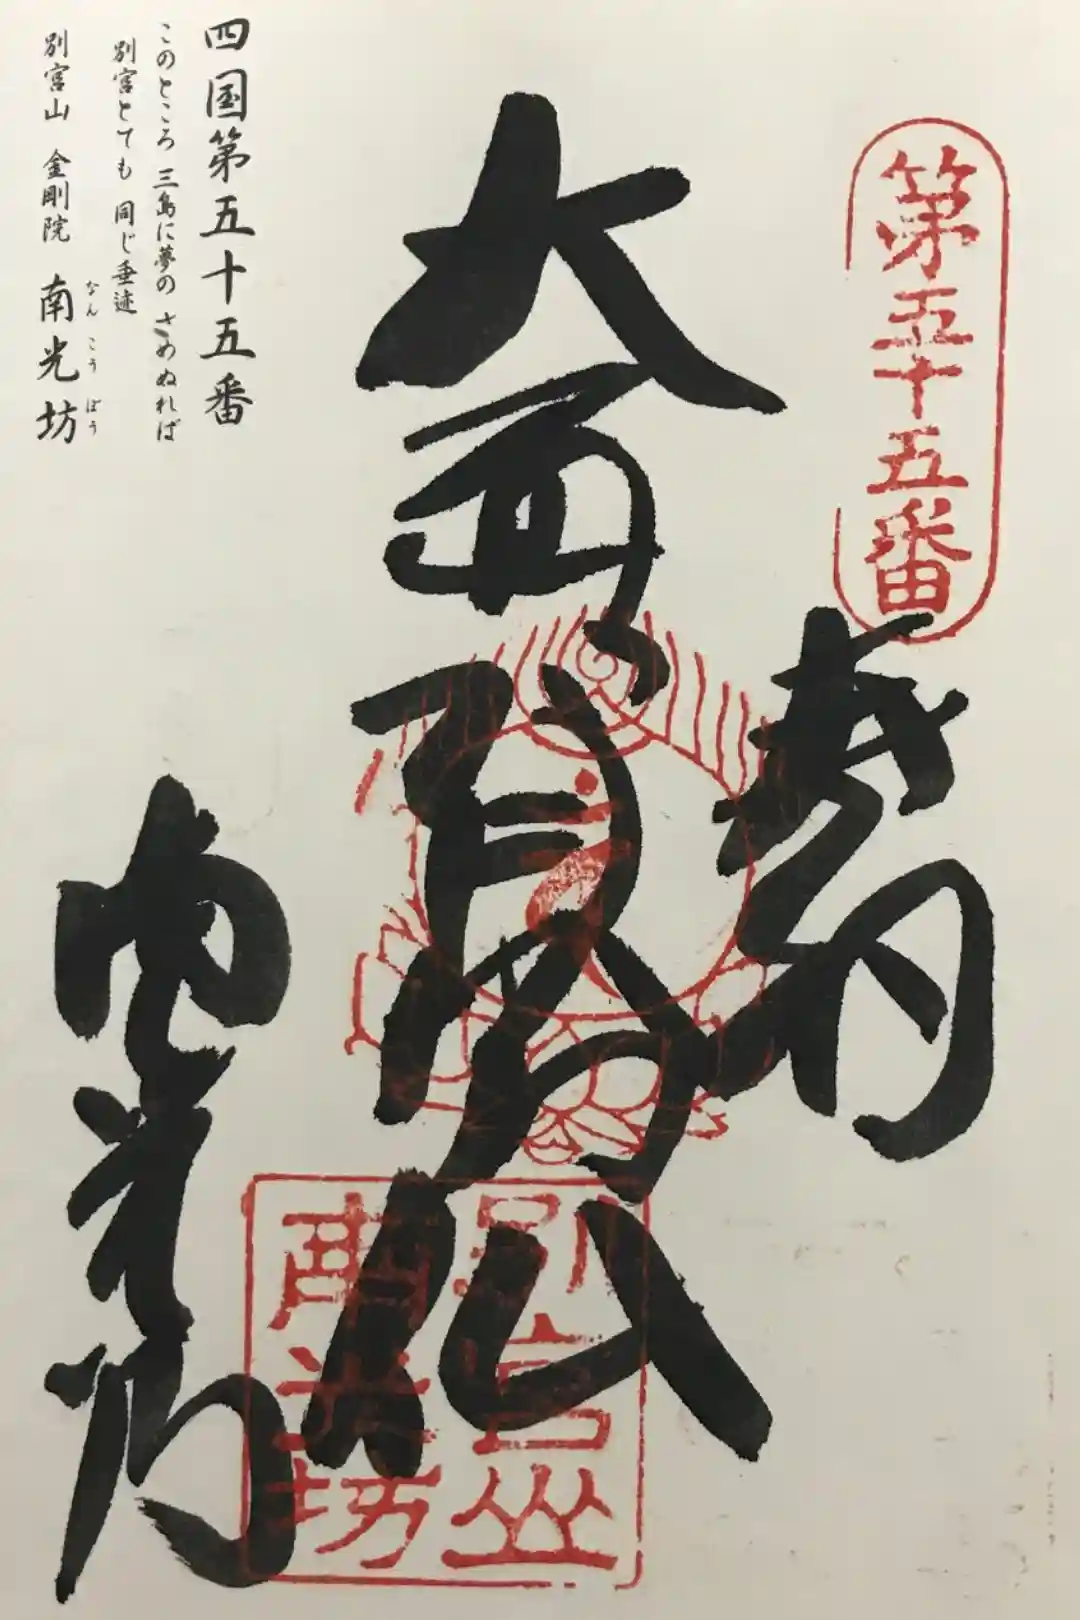 第五十五番
奉納
大通智勝仏
南光坊
別宮山
南光坊
四国第五十五番
このところ 三島に夢の さめぬれば
別宮とても 同じ垂迹
別宮山 金剛院 南光坊
なん こう ぼう